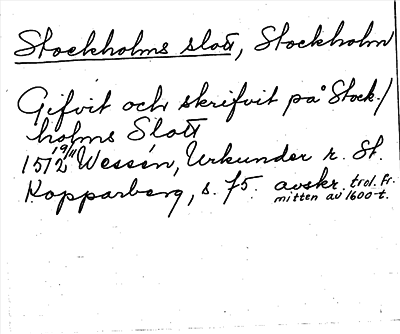 Stockholms slott, Stockholm
Gifvit och skrifvit på Stock-/
holms Slott
19/11
1572 Wessén, Urkunder r. St.
Kopparberg, s. 75. avskr. trol. fr.
mitten av 1600-t.